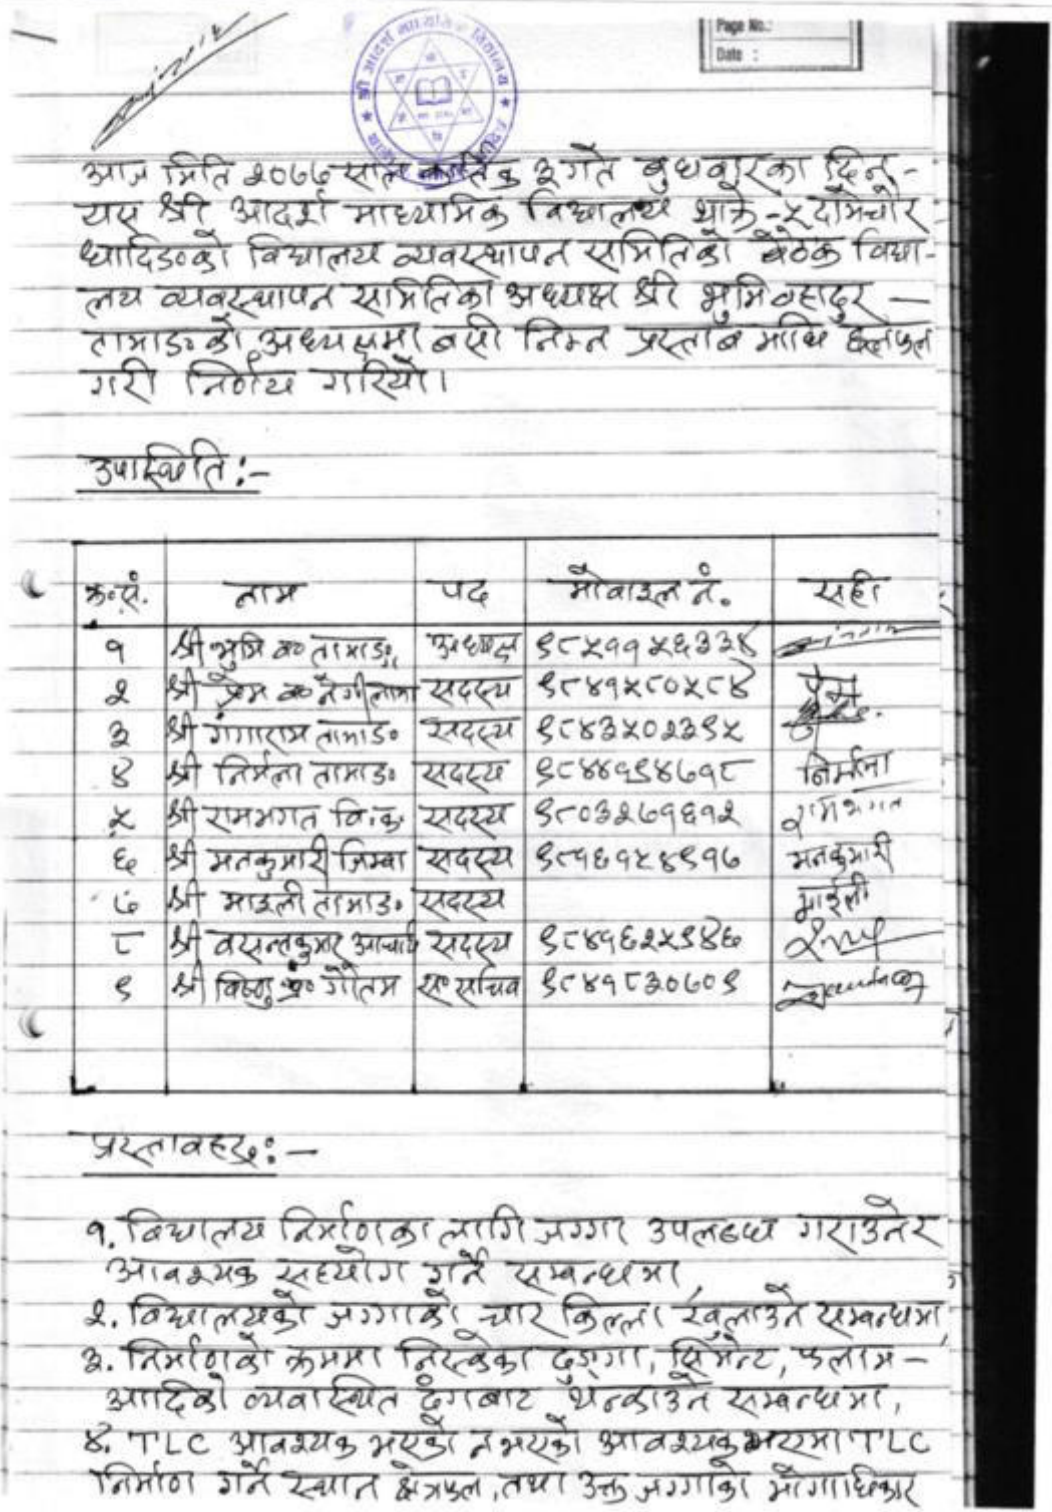 Page No.:
Date :
श्री आदर्श माध्यमिक विद्यालय
आज मिति २०७७ साल कार्तिक ३ गते बुधवारका दिन -
यस श्री आदर्श माध्यामिक विद्यालय थाक्रे -५ दोमचौर
धादिङको विद्यालय व्यवस्थापन समितिको बैठक विद्या-
लय व्यवस्थापन समितिका अध्यक्ष श्री भुमि वहादुर —
तामाङको अध्यक्षमा बसी निम्न प्रस्ताब माथि छलफल
गरी निर्णय गरियो।
उपस्थिति :-
क्र.सं. नाम पद मोवाइल नं. सही
१ श्री भुमि ब० तामाङ अध्यक्ष ९८५११५६३३४
२ श्री प्रेम ब० नेगी लामा सदस्य ९८४१५८०५८४ प्रेम
३ श्री गंगाराम तामाङ सदस्य ९८४३५०२३९५
४ श्री निर्मला तामाङ सदस्य ९८४४९९४७१८ निर्मला
५ श्री रामभगत वि.क. सदस्य ९८०३२७१६१२ रामभगत
६ श्री मनकुमारी जिम्बा सदस्य ९८१६१५४९१७ मनकुमारी
७ श्री माइली तामाङ सदस्य माईली
८ श्री वसन्तकुमार आचार्य सदस्य ९८४१६२५९४६
९ श्री विष्णु प्र० गौतम स० सचिव ९८४१८३०७०९
प्रस्तावहरु :-
१. विद्यालय निर्माणका लागि जग्गा उपलब्ध गराउने र
आवश्यक सहयोग गर्ने सम्बन्धमा,
२. विद्यालयको जग्गाको चार किल्ला खुलाउने सम्बन्धमा,
३. निर्माणको क्रममा निस्केका ढुङ्गा, सिमेन्ट, फलाम -
आदिको व्यवास्थित ढंगबाट थन्काउने सम्बन्धमा,
४. TLC आवश्यक भएको नभएको आवश्यक भएमा TLC
निर्माण गर्ने स्थान क्षेत्रफल, तथा उक्त जग्गाको भोगाधिकार